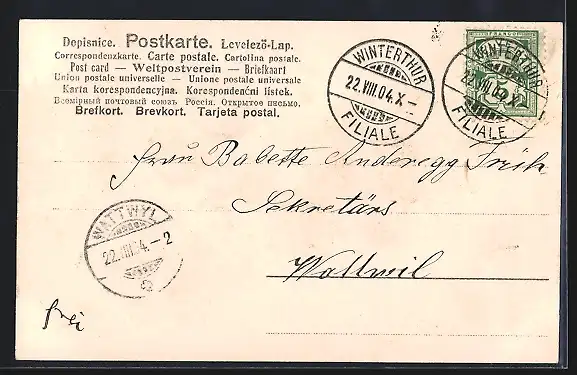 Dopisnice. Postkarte. Levelező-Lap.
Correspondenzkarte. Carte postale. Cartolina postale.
Post card — Weltpostverein — Briefkaart
Union postale universelle — Unione postale universale
Karta korespondencyjna. Korespondenční lístek.
Всемірный почтовый союзъ Россія. Открытое письмо.
Brefkort. Brevkort. Tarjeta postal.
WINTERTHUR
22.VIII.04.X–
FILIALE
FRANCO
WINTERTHUR
22.VIII.04.X
FILIALE
Frau Babette Anderegg
Sekretärs
Wattwil
WATTWYL
22.VIII.04.–2
frei